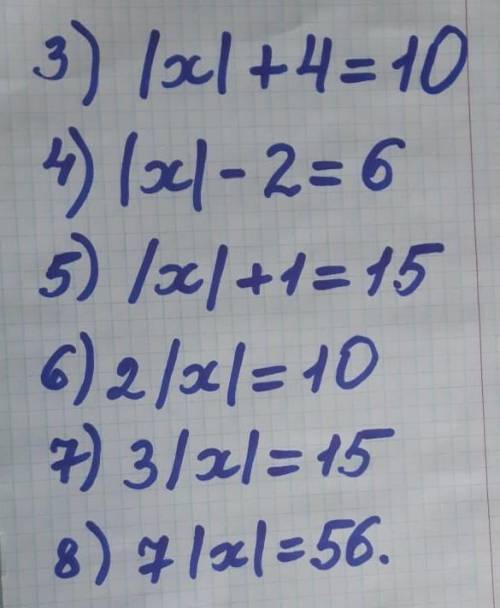 3) |x| + 4 = 10
4) |x| - 2 = 6
5) |x| + 1 = 15
6) 2|x| = 10
7) 3|x| = 15
8) 7|x| = 56.